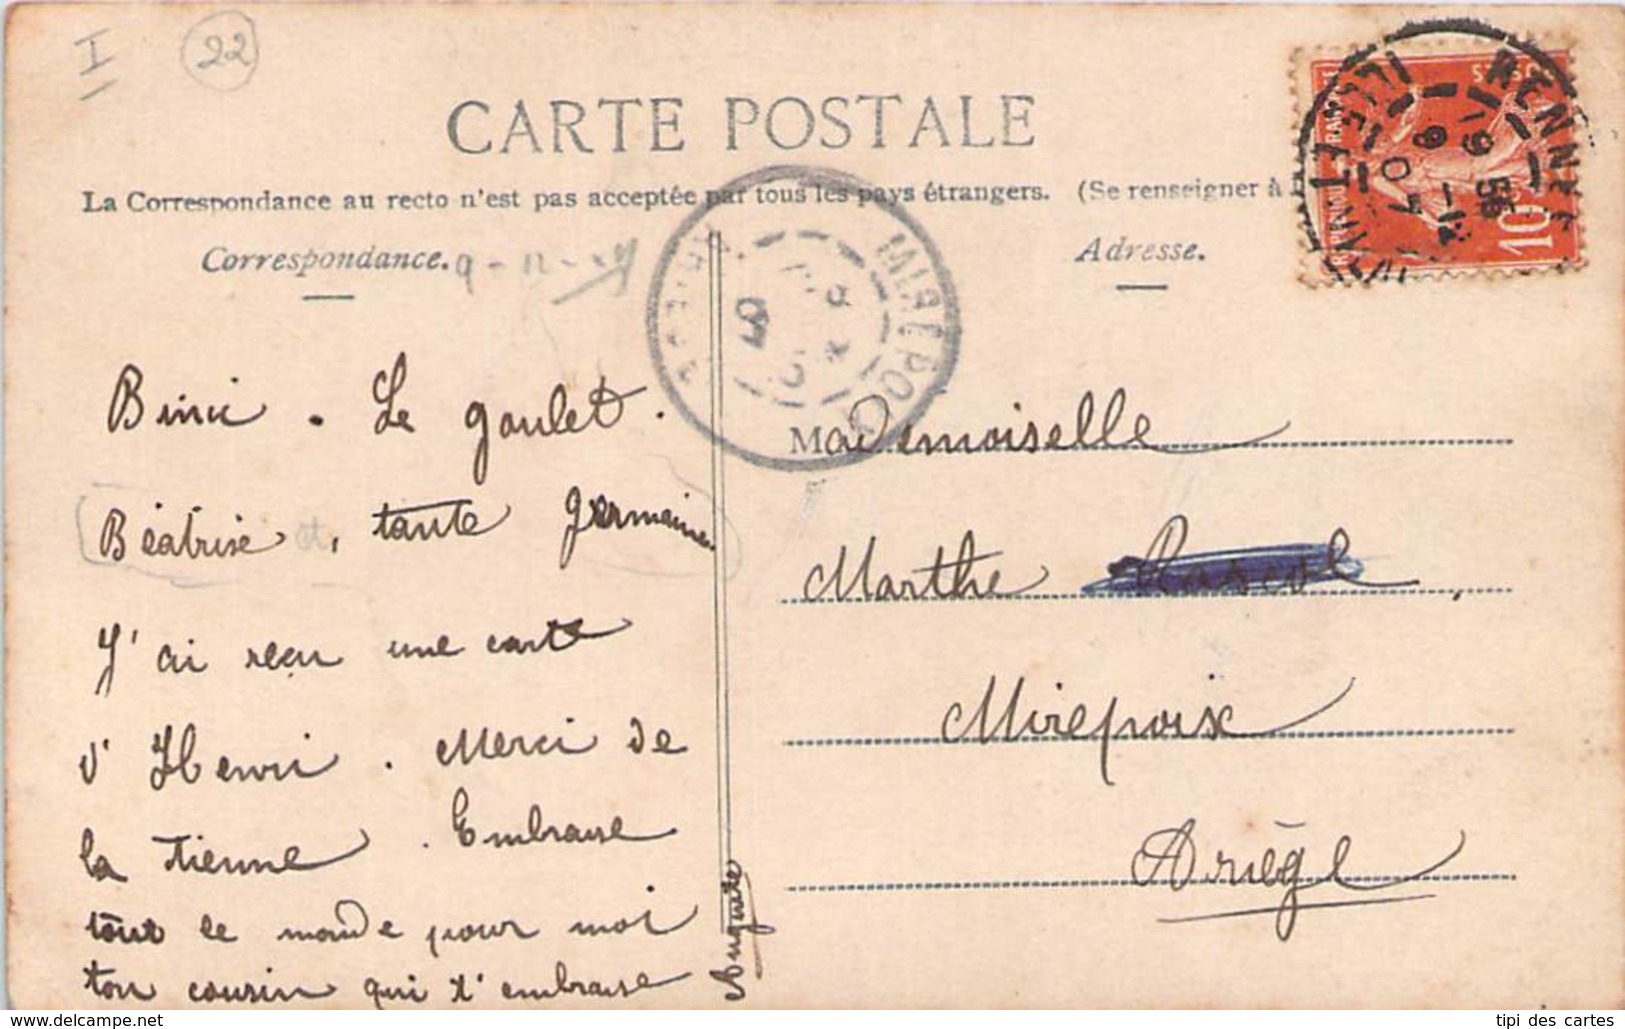 I
22
CARTE POSTALE
La Correspondance au recto n'est pas acceptée par tous les pays étrangers. (Se renseigner à
Correspondance. 9-12-
Adresse.
RENNES
9-12
07
10
MIREPOIX
ARIEGE
Binic. Le Goulet.
Béatrise et, tante Germaine
J'ai reçu une carte
d'Henri. Merci de
la tienne. Embrasse
tout le monde pour moi
ton cousin qui t'embrasse
Mademoiselle
Marthe
Mirepoix
Ariège
tipi des cartes